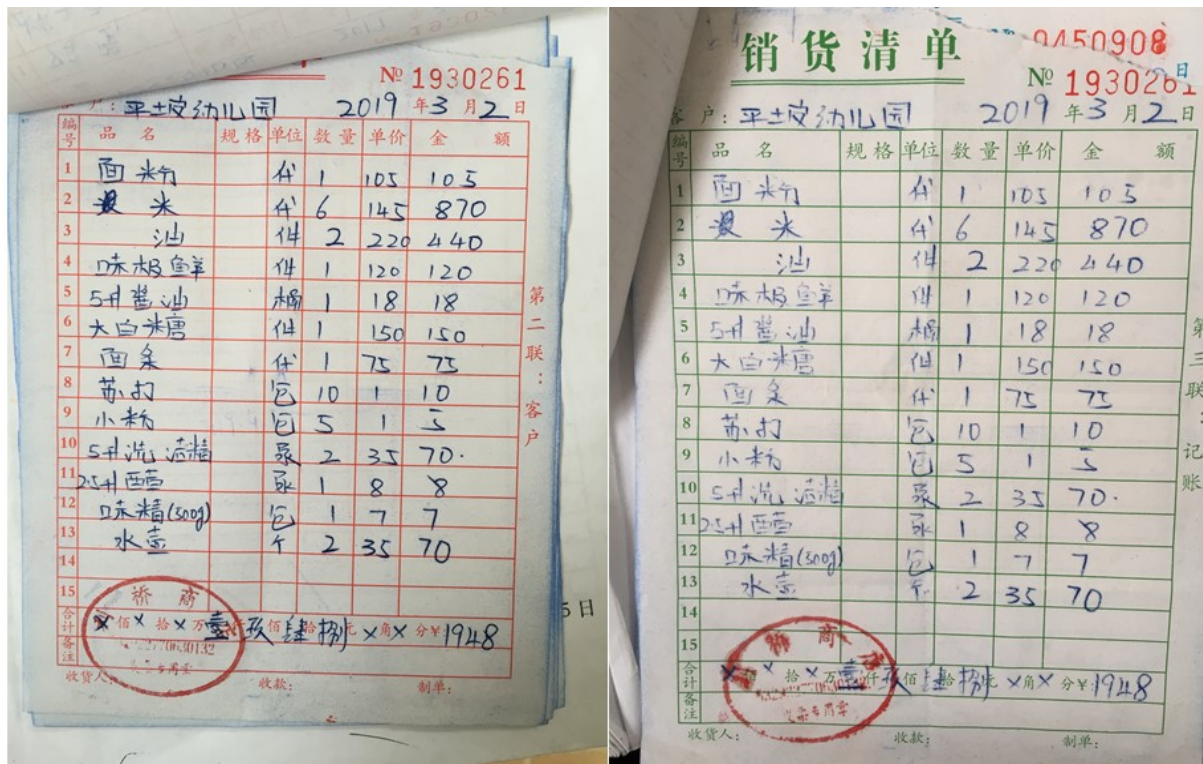 № 1930261
客户：平坡幼儿园 2019年3月2日
编号 品名 规格 单位 数量 单价 金额
1 面粉 代 1 105 105
2 米 代 6 145 870
3 油 件 2 220 440
4 味极鲜 件 1 120 120
5 5升酱油 桶 1 18 18
6 大白糖 件 1 150 150
7 面条 代 1 75 75
8 苏打 包 10 1 10
9 小粉 包 5 1 5
10 5升洗洁精 2 35 70.
11 2.5升醋 1 8 8
12 味精(500g) 包 1 7 7
13 水壶 个 2 35 70
14
15
合计 X佰X拾X万壹仟玖佰肆拾捌元X角X分¥:1948
备注
收货人: 收款: 制单:
第二联：客户
桥商
5日
9450908
日
销货清单
№ 1930261
客户：平坡幼儿园 2019年3月2日
编号 品名 规格 单位 数量 单价 金额
1 面粉 代 1 105 105
2 米 代 6 145 870
3 油 件 2 220 440
4 味极鲜 件 1 120 120
5 5升酱油 桶 1 18 18
6 大白糖 件 1 150 150
7 面条 代 1 75 75
8 苏打 包 10 1 10
9 小粉 包 5 1 5
10 5升洗洁精 2 35 70.
11 2.5升醋 1 8 8
12 味精(500g) 包 1 7 7
13 水壶 个 2 35 70
14
15
合计 X拾X万壹仟玖佰肆拾捌元X角X分¥:1948
备注
收货人: 收款: 制单:
第三联 记账
桥商店